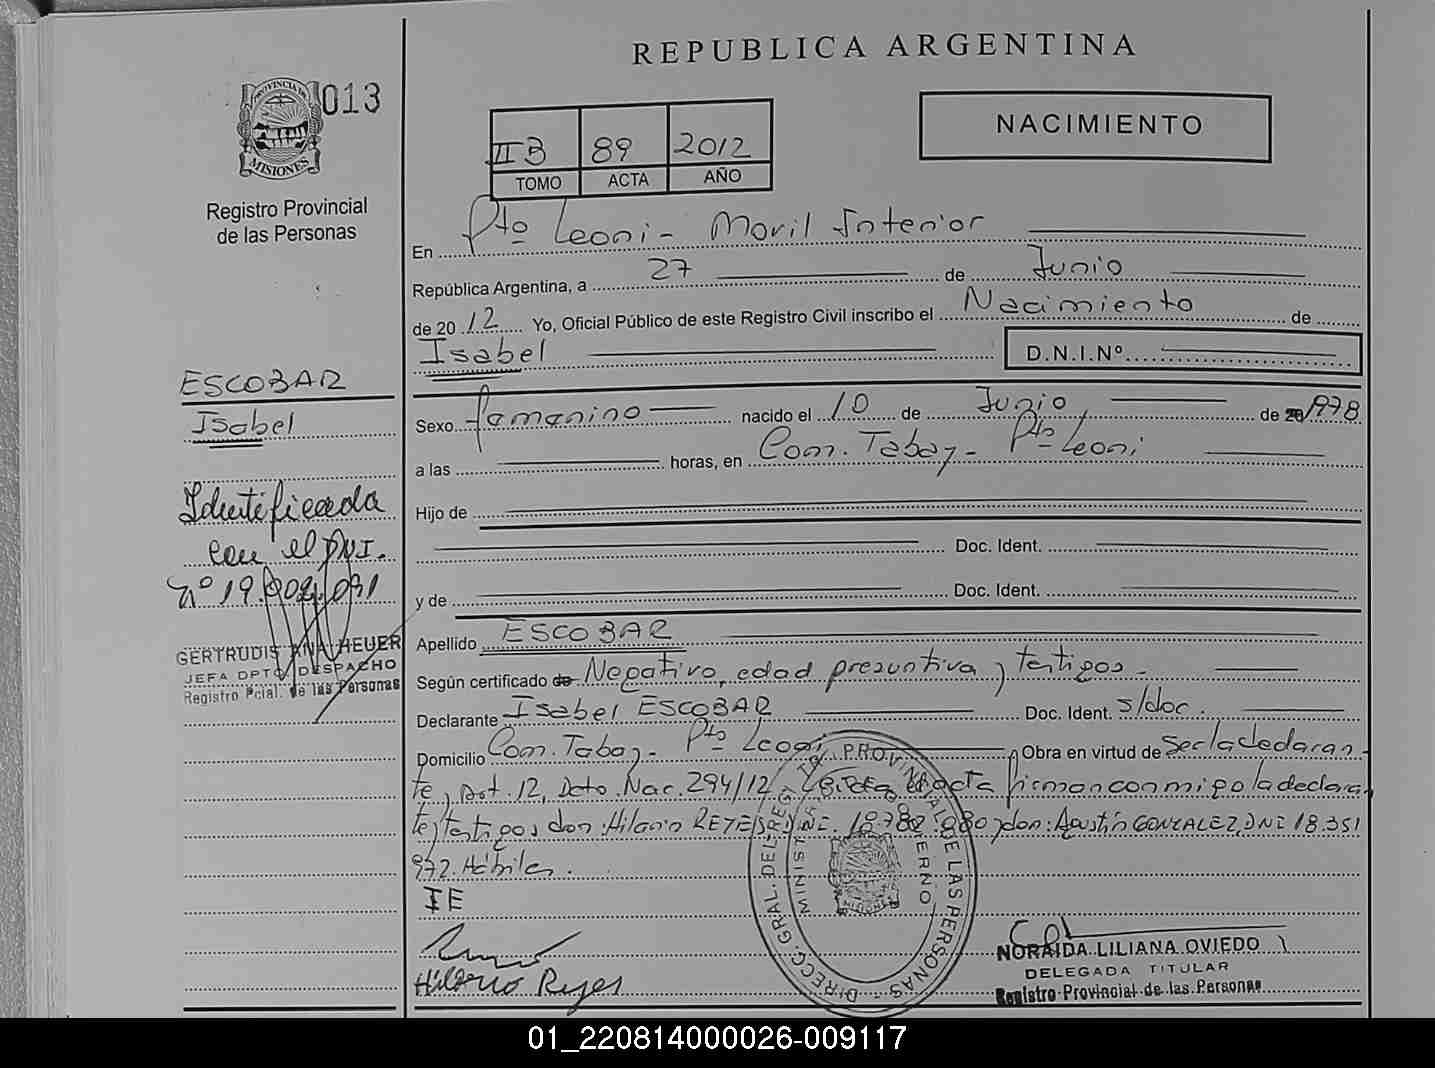 REPUBLICA ARGENTINA
013
PROVINCIA DE
MISIONES
Registro Provincial
de las Personas
NACIMIENTO
II B 89 2012
TOMO ACTA AÑO
En Pto Leoni - Movil Interior
República Argentina, a 27 de Junio
de 2012 Yo, Oficial Público de este Registro Civil inscribo el Nacimiento de
Isabel D.N.I.Nº
ESCOBAR
Isabel
Identificada
con el DNI.
Nº 19.902.091
GERTRUDIS ANA HEUER
JEFA DPTO DESPACHO
Registro Pcial. de las Personas
Sexo femenino nacido el 10 de Junio de 1978
a las horas, en Com. Tabay - Pto Leoni
Hijo de
Doc. Ident.
y de Doc. Ident.
Apellido ESCOBAR
Según certificado de Negativo, edad presuntiva y testigos.
Declarante Isabel ESCOBAR Doc. Ident. s/doc.
Domicilio Com. Tabay - Pto Leoni Obra en virtud de ser la declaran
te, Art. 12, Dcto. Nac. 294/12 Leida el acta firman conmigo la declaran
te, testigos don: Hilario REYES DNI. 18.782.980 y don: Agustín GONZALEZ, DNI 18.351
972. Hábiles.
IE
Hilario Reyes
DIRECC. GRAL. DEL REGISTRO PROVINCIAL DE LAS PERSONAS
MINISTERIO DE GOBIERNO
MISIONES
NORAIDA LILIANA OVIEDO
DELEGADA TITULAR
Registro Provincial de las Personas
01_220814000026-009117